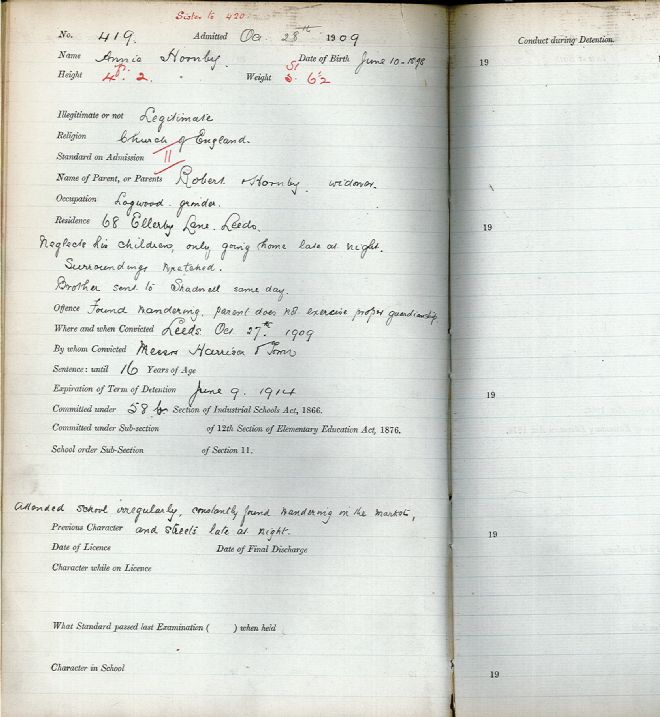 Sister to 420.
No. 419. Admitted Oc. 28th 1909
Name Annie Hornby. Date of Birth June 10-1898
Height 4ft. 2. Weight St 5. 6½
Illegitimate or not Legitimate
Religion Church of England.
Standard on Admission II
Name of Parent, or Parents Robert Hornby widower.
Occupation Logwood grinder.
Residence 68 Ellerby Lane. Leeds.
Neglects his children, only going home late at night.
Surroundings wretched.
Brother sent to Shadwell same day.
Offence Found wandering, parent does not exercise proper guardianship.
Where and when Convicted Leeds. Oct 27th 1909
By whom Convicted Messrs Harrison &
Sentence: until 16 Years of Age
Expiration of Term of Detention June 9. 1914
Committed under 58 Section of Industrial Schools Act, 1866.
Committed under Sub-section of 12th Section of Elementary Education Act, 1876.
School order Sub-Section of Section 11.
Attended school irregularly, constantly found wandering in the markets,
Previous Character and streets late at night.
Date of Licence Date of Final Discharge
Character while on Licence
What Standard passed last Examination ( ) when held
Character in School
Conduct during Detention.
19
19
19
19
19